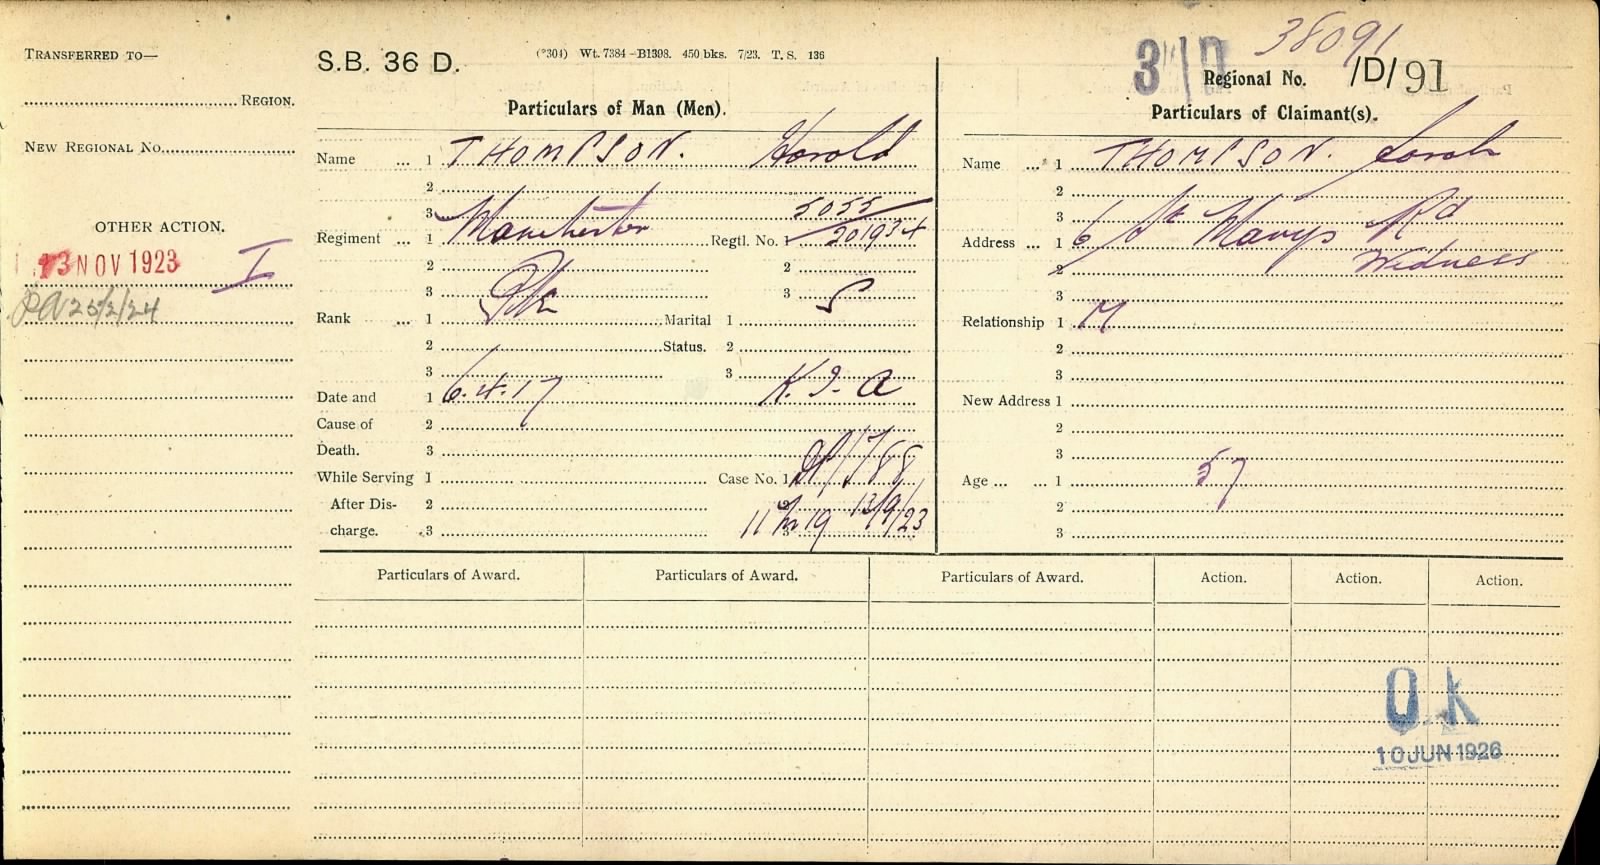 TRANSFERRED TO—
REGION.
NEW REGIONAL NO.
OTHER ACTION.
13 NOV 1923 I
PA 25/2/24
S.B. 36 D.
(*304) Wt. 7384—B1398. 450 bks. 7/23. T. S. 136
Particulars of Man (Men).
Name ... 1 THOMPSON. Harold
2
3
Regiment ... 1 Manchester Regtl. No. 1 5055/ 201934
2 2
3 3
Rank ... 1 Pte Marital 1 S
2 Status. 2
3 3
Date and 1 6.4.17 K. I. A
Cause of 2
Death. 3
While Serving 1 Case No. 1 /1788
After Dis- 2 13/9/23
charge. 3 11 19
38091
3/D Regional No. /D/91
Particulars of Claimant(s).
Name ... 1 THOMPSON. Sarah
2
3
Address ... 1 6 St Marys Rd
2 Widness
3
Relationship 1 M
2
3
New Address 1
2
3
Age ... ... 1 57
2
3
Particulars of Award. Particulars of Award. Particulars of Award. Action. Action. Action.
O.K
10 JUN 1926